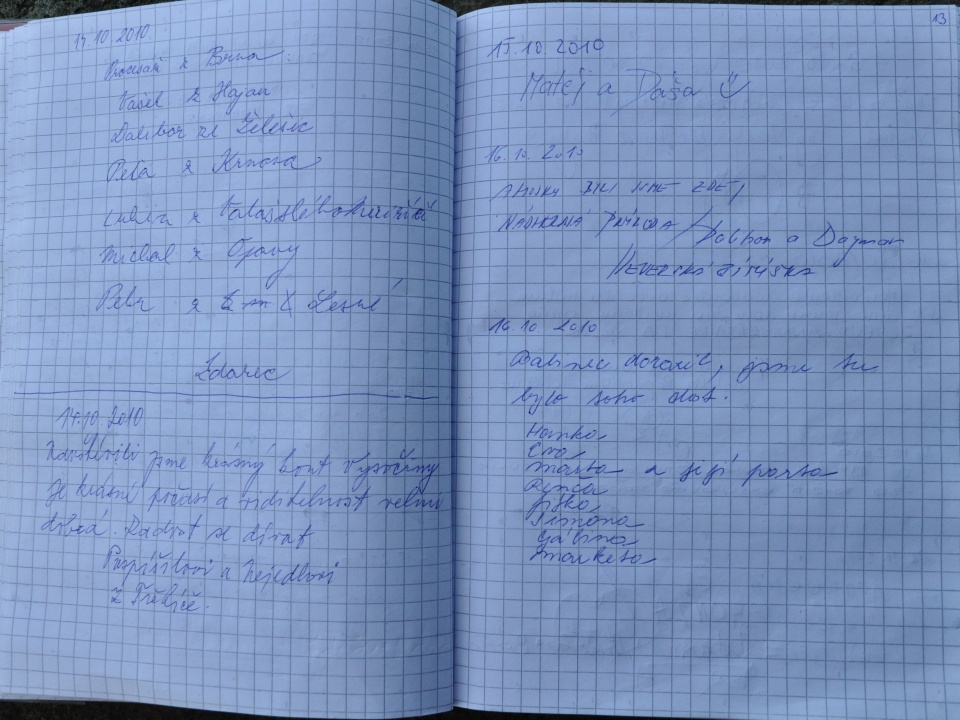 14.10.2010
z Brna:
z Hajan
Dalibor ze Želešic
Petr z Krnova
z Valašského Meziříčí
Michal z Opavy
Petr z Lesné
Zdarec
14.10.2010
Navštívili jsme krásný kout Vysočiny
Je krásné počasí a viditelnost velmi
dobrá. Radost se dívat
Pospíšilovi a Nejedlovi
z Třebíče.
13
15.10.2010
Matěj a Dáša
16.10.2010
BYLI JSME ZDE,
NÁDHERNÁ PŘÍRODA / Dalibor a Dagmar
JITUŠKA
16.10 2010
Babinec dorazil, jsme tu
bylo toho dost.
Hanka
Eva
Marta a její parta
Renča
Jitka
Simona
Gábina
Markéta